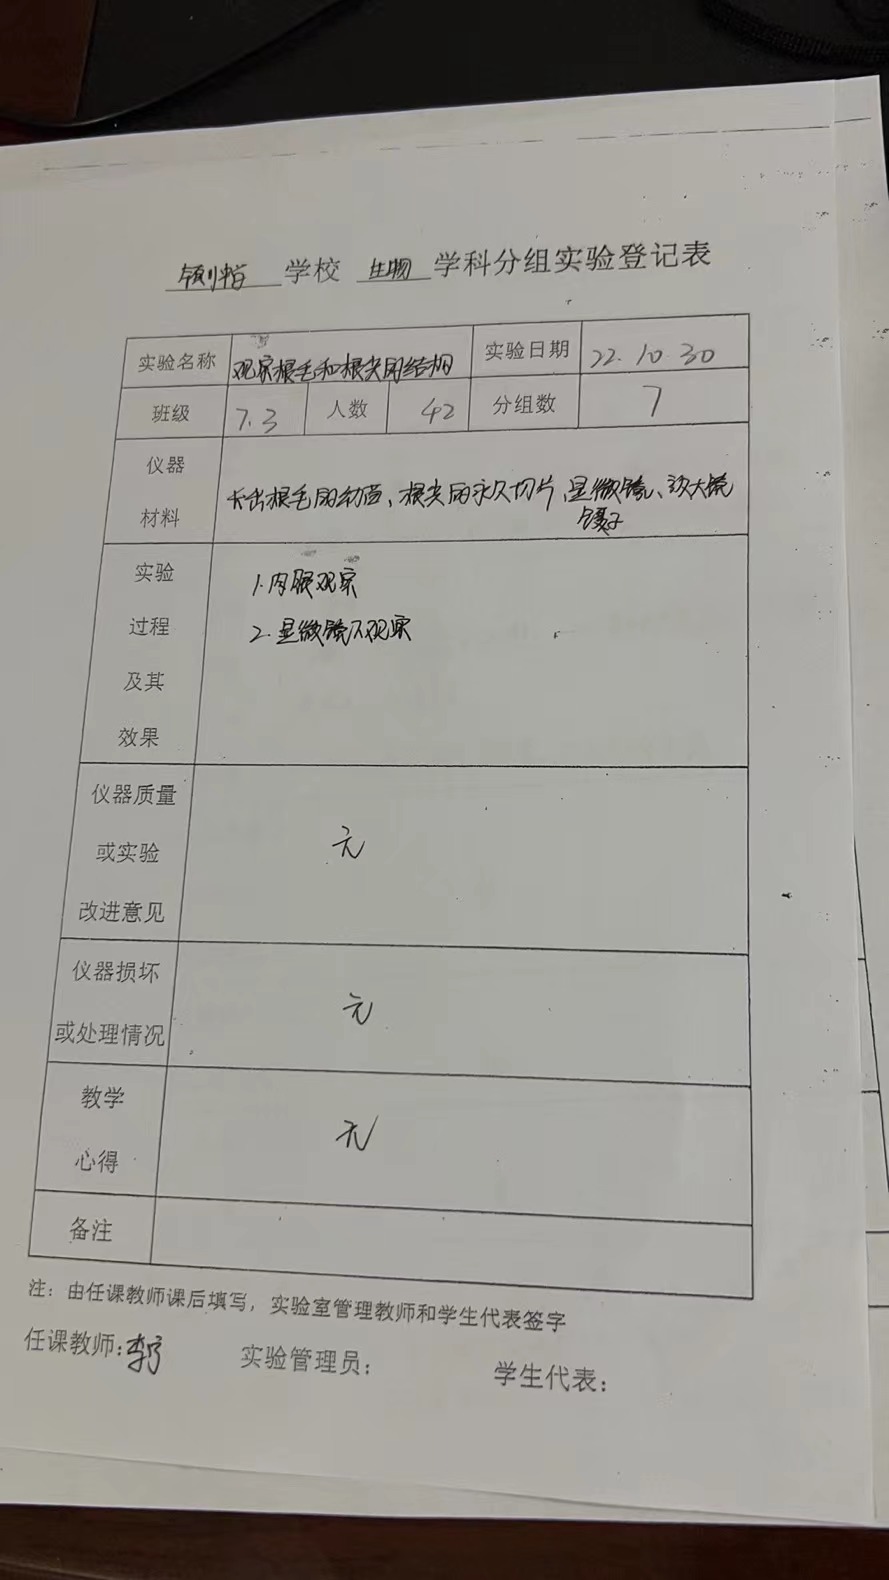 学校 生物 学科分组实验登记表
实验名称 观察根毛和根尖的结构 实验日期 22.10.30
班级 7.3 人数 42 分组数 7
仪器
材料
长出根毛的幼苗、根尖的永久切片、显微镜、放大镜
镊子
实验
过程
及其
效果
1.肉眼观察
2.显微镜下观察
仪器质量
或实验
改进意见
无
仪器损坏
或处理情况
无
教学
心得
无
备注
注：由任课教师课后填写，实验室管理教师和学生代表签字
任课教师： 实验管理员： 学生代表：